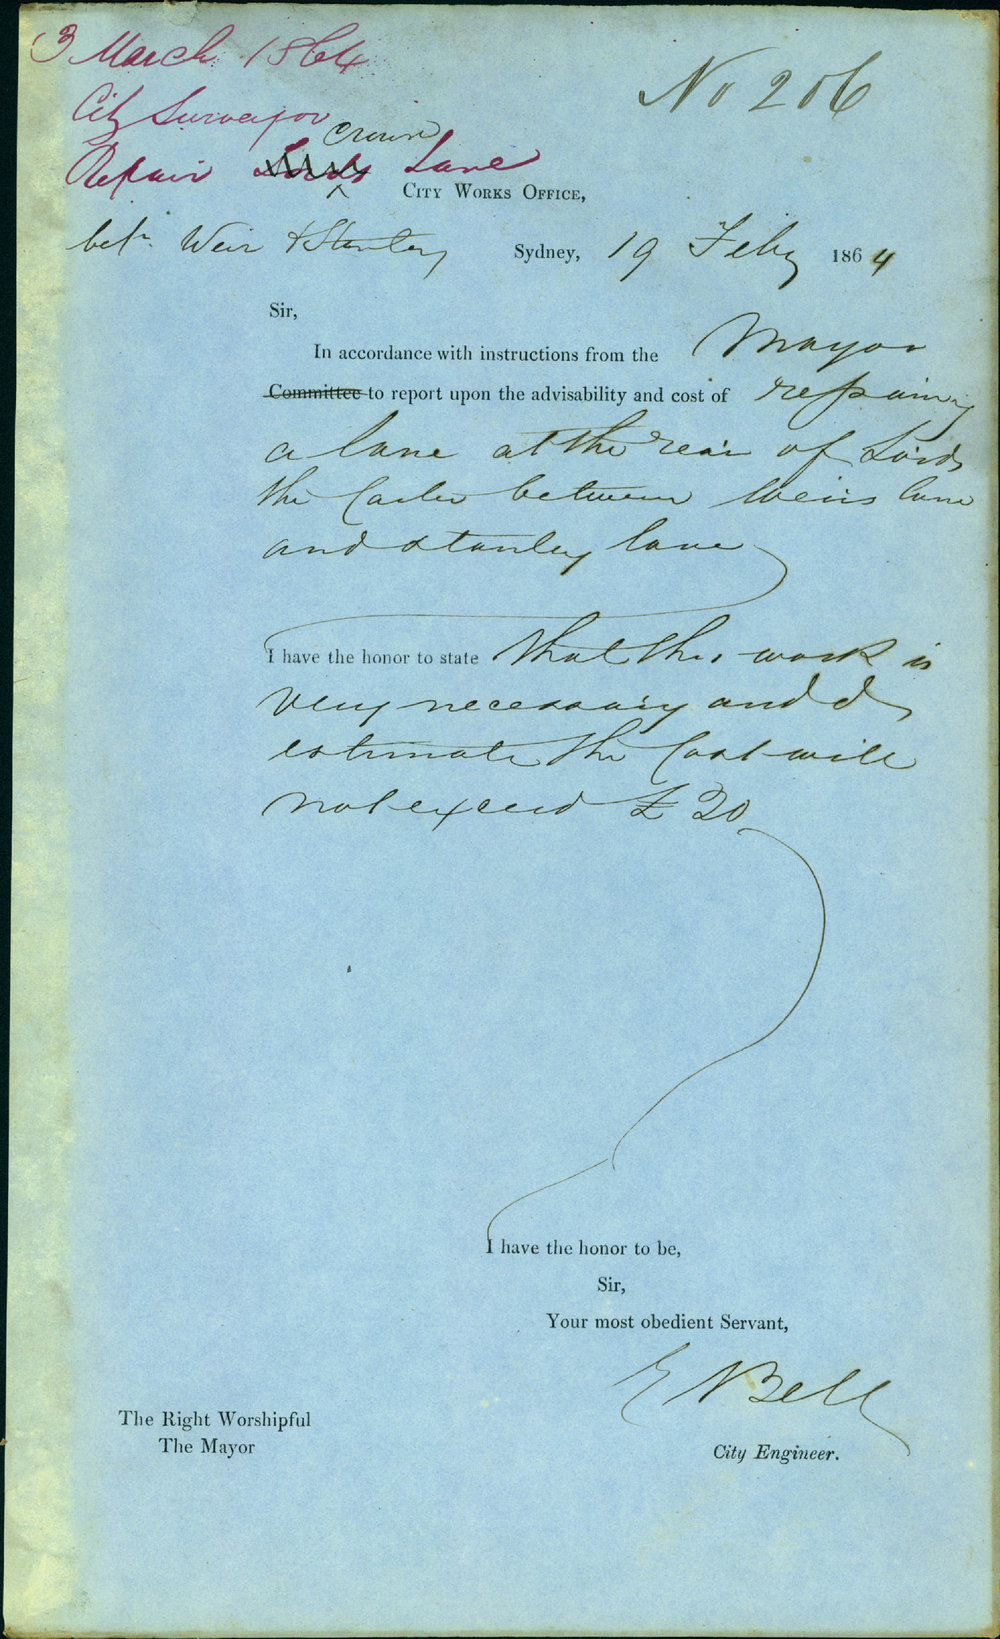 3 March 1864
No 206
City Surveyor
Crown
Repair Lords Lane
CITY WORKS OFFICE,
betn. Weir & Stanley
Sydney, 19 Feby 1864
Sir,
In accordance with instructions from the Mayor
Committee to report upon the advisability and cost of repairing
a lane at the rear of Lords
the Carter between Weirs lane
and Stanley lane
I have the honor to state that this work is
very necessary and I
estimate the Cost will
not exceed £
I have the honor to be,
Sir,
Your most obedient Servant,
E Bell
The Right Worshipful
The Mayor
City Engineer.